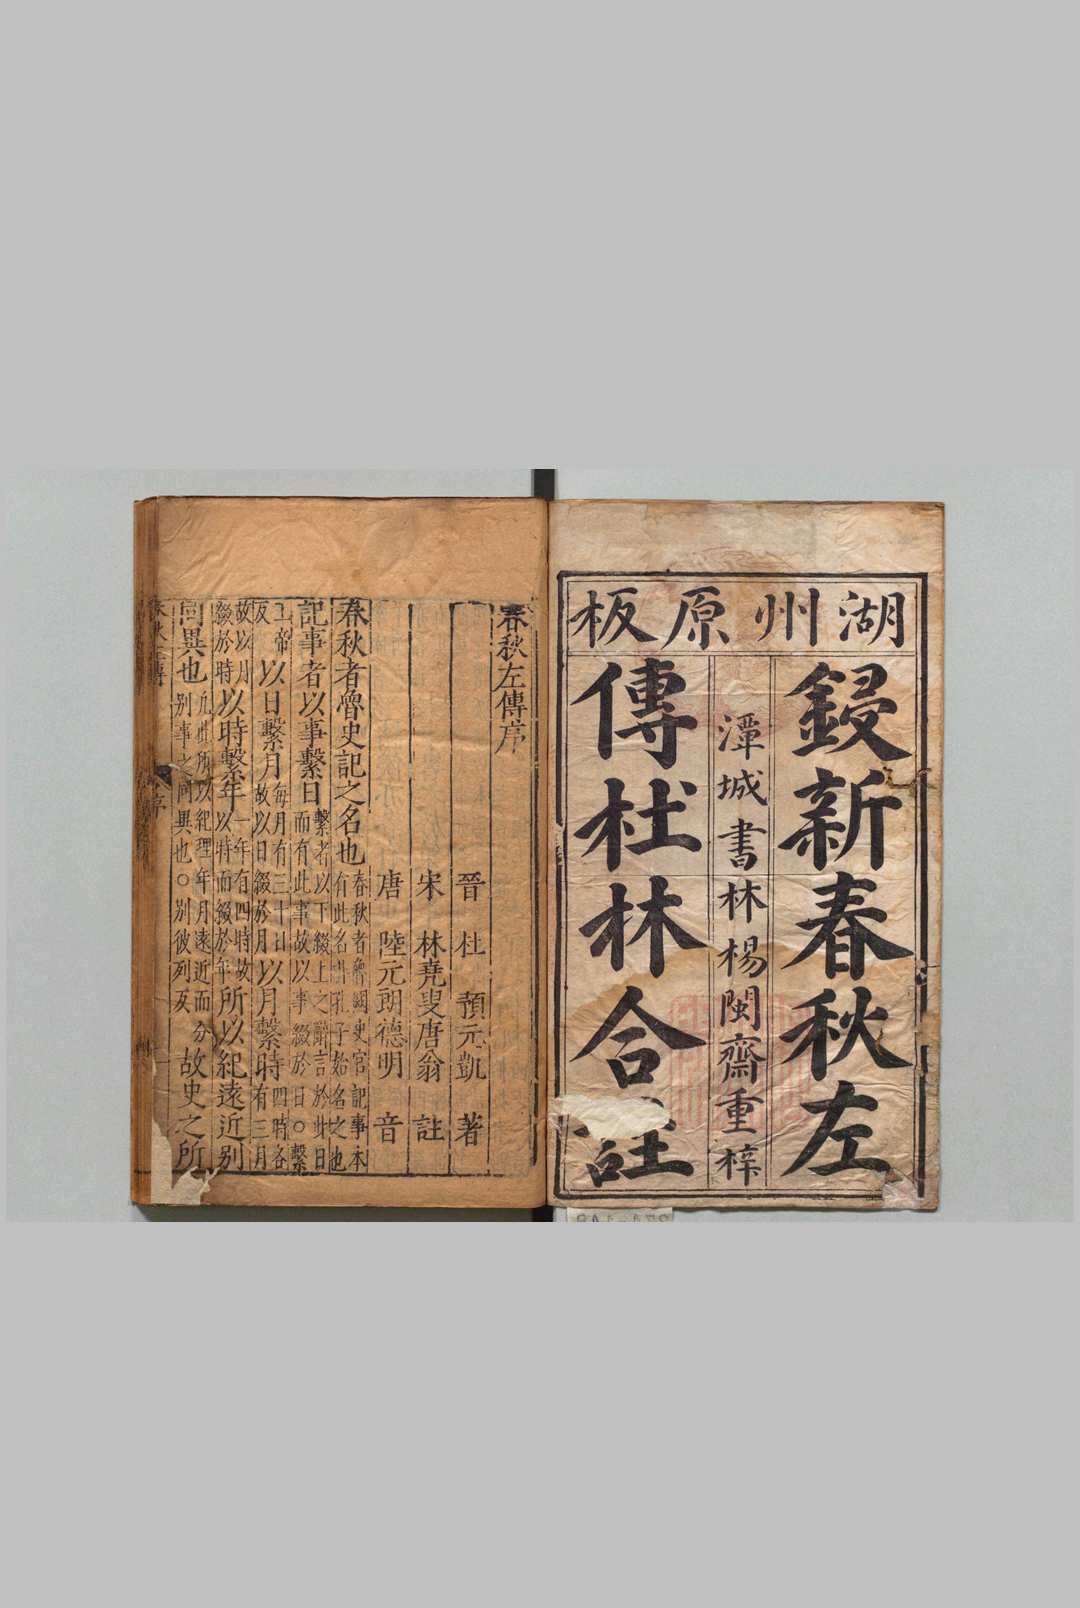 湖州原板
鋟新春秋左
潭城書林楊閩齋重梓
傳杜林合註
春秋左傳序
晉 杜 預元凱 著
宋 林堯叟唐翁 註
唐 陸元朗德明 音
春秋者魯史記之名也春秋者魯國史官記事本
有此名由孔子始名之也
記事者以事繫日繫者以下綴上之辭言於此日
而有此事故以事綴於日○繫
工帝
反以日繫月每月有三十日
故以日綴於月以月繫時四時各
有三月
故以月
綴於時以時繫年一年有四時故
以時而綴於年所以紀遠近別
同異也所以紀理年月遠近而分
別事之同異也○別彼列反故史之所